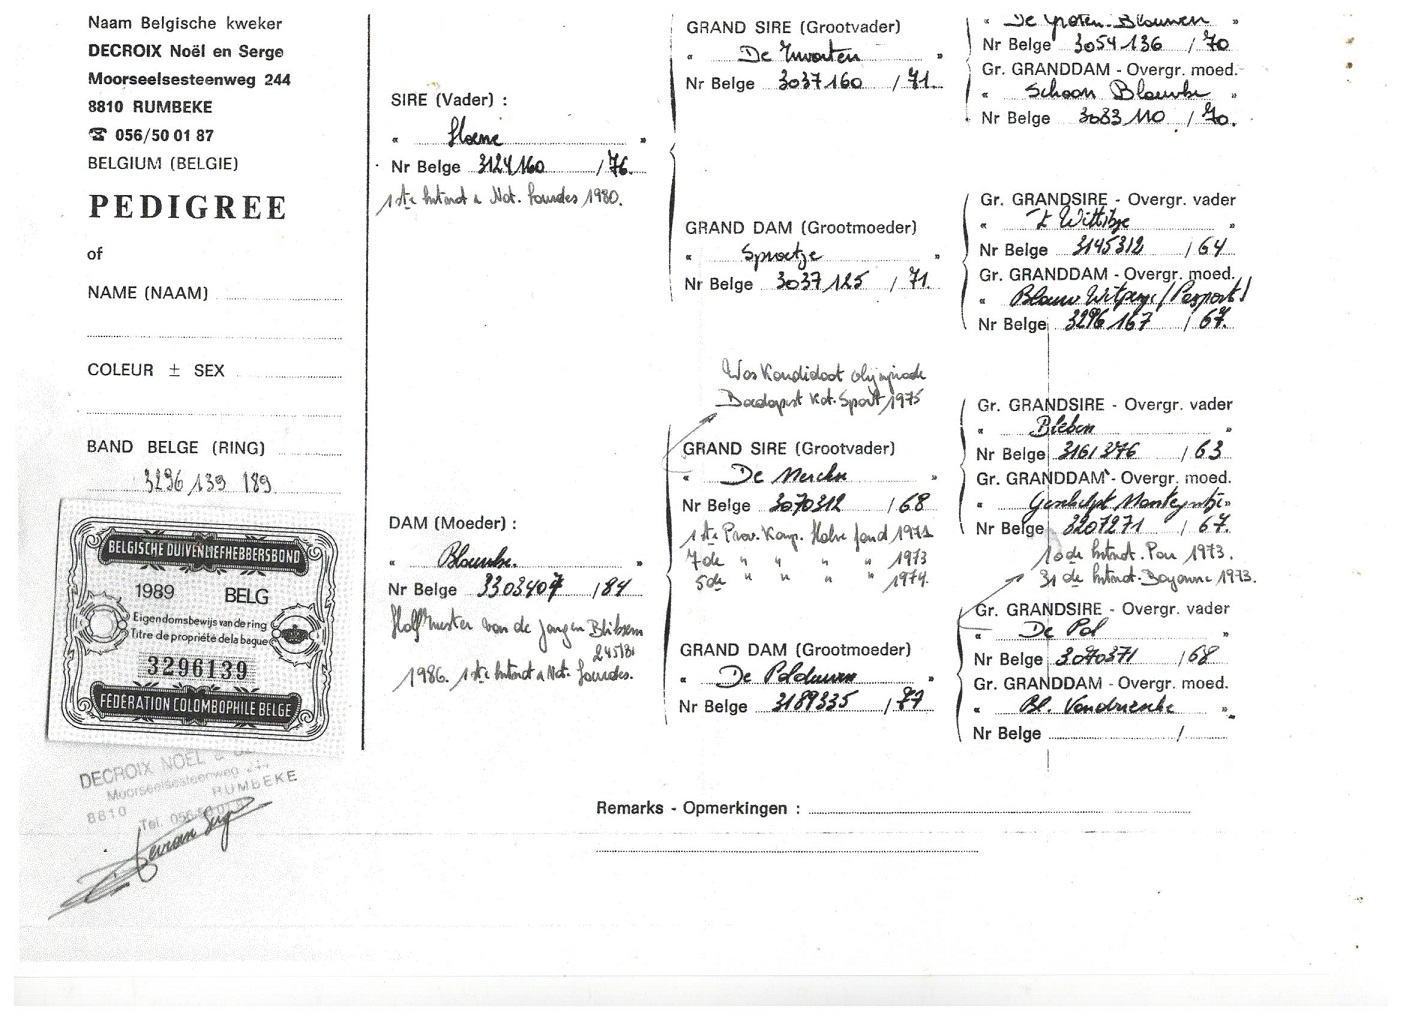 Naam Belgische kweker
DECROIX Noël en Serge
Moorseelsesteenweg 244
8810 RUMBEKE
☎ 056/50 01 87
BELGIUM (BELGIE)
PEDIGREE
of
NAME (NAAM)
COLEUR ± SEX
BAND BELGE (RING)
3296139 189
BELGISCHE DUIVENLIEFHEBBERSBOND
1989 BELG
Eigendomsbewijs van de ring
Titre de propriété de la bague
3296139
FÉDÉRATION COLOMBOPHILE BELGE
DECROIX NOËL &
Moorseelsesteenweg 244
8810 RUMBEKE
Tel. 056
SIRE (Vader) :
« »
Nr Belge 3124160 / 76.
1ste Intnat & Nat. Lourdes 1980.
DAM (Moeder) :
« Blauwke. »
Nr Belge 3303407 / 84
Halfzuster van de jongen Bliksem
245/81
1986. 1ste Intnat & Nat. Lourdes.
GRAND SIRE (Grootvader)
« De Zwarten »
Nr Belge 3037160 / 71.
GRAND DAM (Grootmoeder)
« Sproetje »
Nr Belge 3037125 / 71.
Was Kandidaat olympiade
Budapest Kat. Sport 1975
GRAND SIRE (Grootvader)
« De Merckx »
Nr Belge 3070312 / 68
1ste Prov. Kamp. Halve fond 1971
7de " " " " 1973
5de " " " " 1974.
GRAND DAM (Grootmoeder)
« De »
Nr Belge 3189335 / 77
« De Groten Blauwen »
Nr Belge 3054136 / 70
Gr. GRANDDAM - Overgr. moed.
« Schoon Blauwke »
Nr Belge 3083110 / 70.
Gr. GRANDSIRE - Overgr. vader
« 't Wittikje »
Nr Belge 3145312 / 64
Gr. GRANDDAM - Overgr. moed.
« Blauw Witpenje »
Nr Belge 3296167 / 67.
Gr. GRANDSIRE - Overgr. vader
« Bleken »
Nr Belge 3161376 / 63
Gr. GRANDDAM - Overgr. moed.
« Geschelpt »
Nr Belge 3207271 / 67.
10de Intnat. Pau 1973.
31de Intnat. Bayonne 1973.
Gr. GRANDSIRE - Overgr. vader
« De Pol »
Nr Belge 3070371 / 68
Gr. GRANDDAM - Overgr. moed.
« Bl. Vandriesche »
Nr Belge /
Remarks - Opmerkingen :